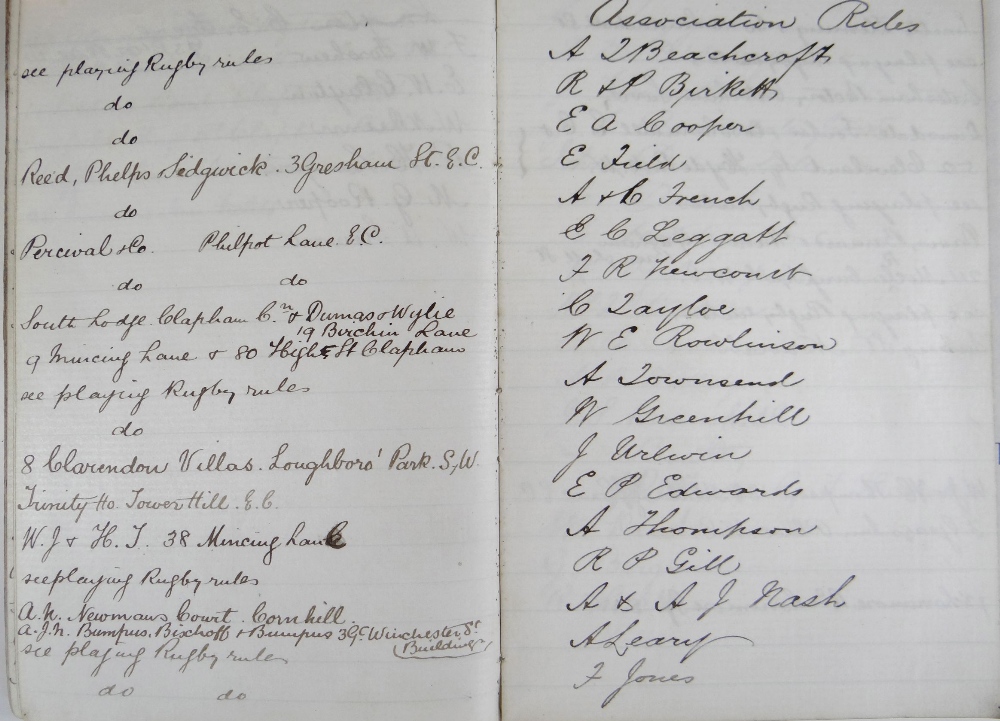 see playing Rugby rules
do
do
Reed, Phelps Sidgwick. 3 Gresham St. E.C.
do
Percival & Co. Philpot Lane. E.C.
do do
South Lodge Clapham Cn & Dumas & Wylie
19 Birchin Lane
9 Mincing Lane & 80 High St Clapham
see playing Rugby rules
do
8 Clarendon Villas. Loughboro' Park. S.W.
Trinity Ho. Tower Hill. E.C.
W. J & H. T. 38 Mincing Lane
see playing Rugby rules
A.N. Newmans Court. Cornhill.
A.J.N. Bumpus, Bischoff & Bumpus 3 Gt Winchester St
Buildings
see playing Rugby rules
do do
Association Rules
A T Beachcroft
R & P Birkett
E A Cooper
E Field
A & C French
E C Leggatt
F R Newcourt
C Tayloe
W E Rowlinson
A Townsend
W Greenhill
J Urlwin
E P Edwards
A Thompson
R P Gill
A & A J Nash
A Leary
F Jones